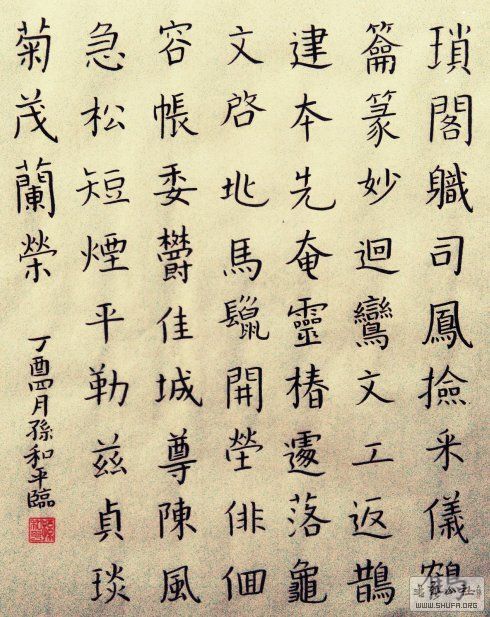 瑣閣軄司鳳撿采儀鶴
籥篆妙迴鸞文工返鵲
建本先奄靈椿遽落龜
文啓兆馬鬣開塋俳佪
容帳委欝佳城尊陳風
急松短煙平勒茲貞琰
菊茂蘭榮
丁酉四月孫和平臨
WWW.SHUFA.ORG